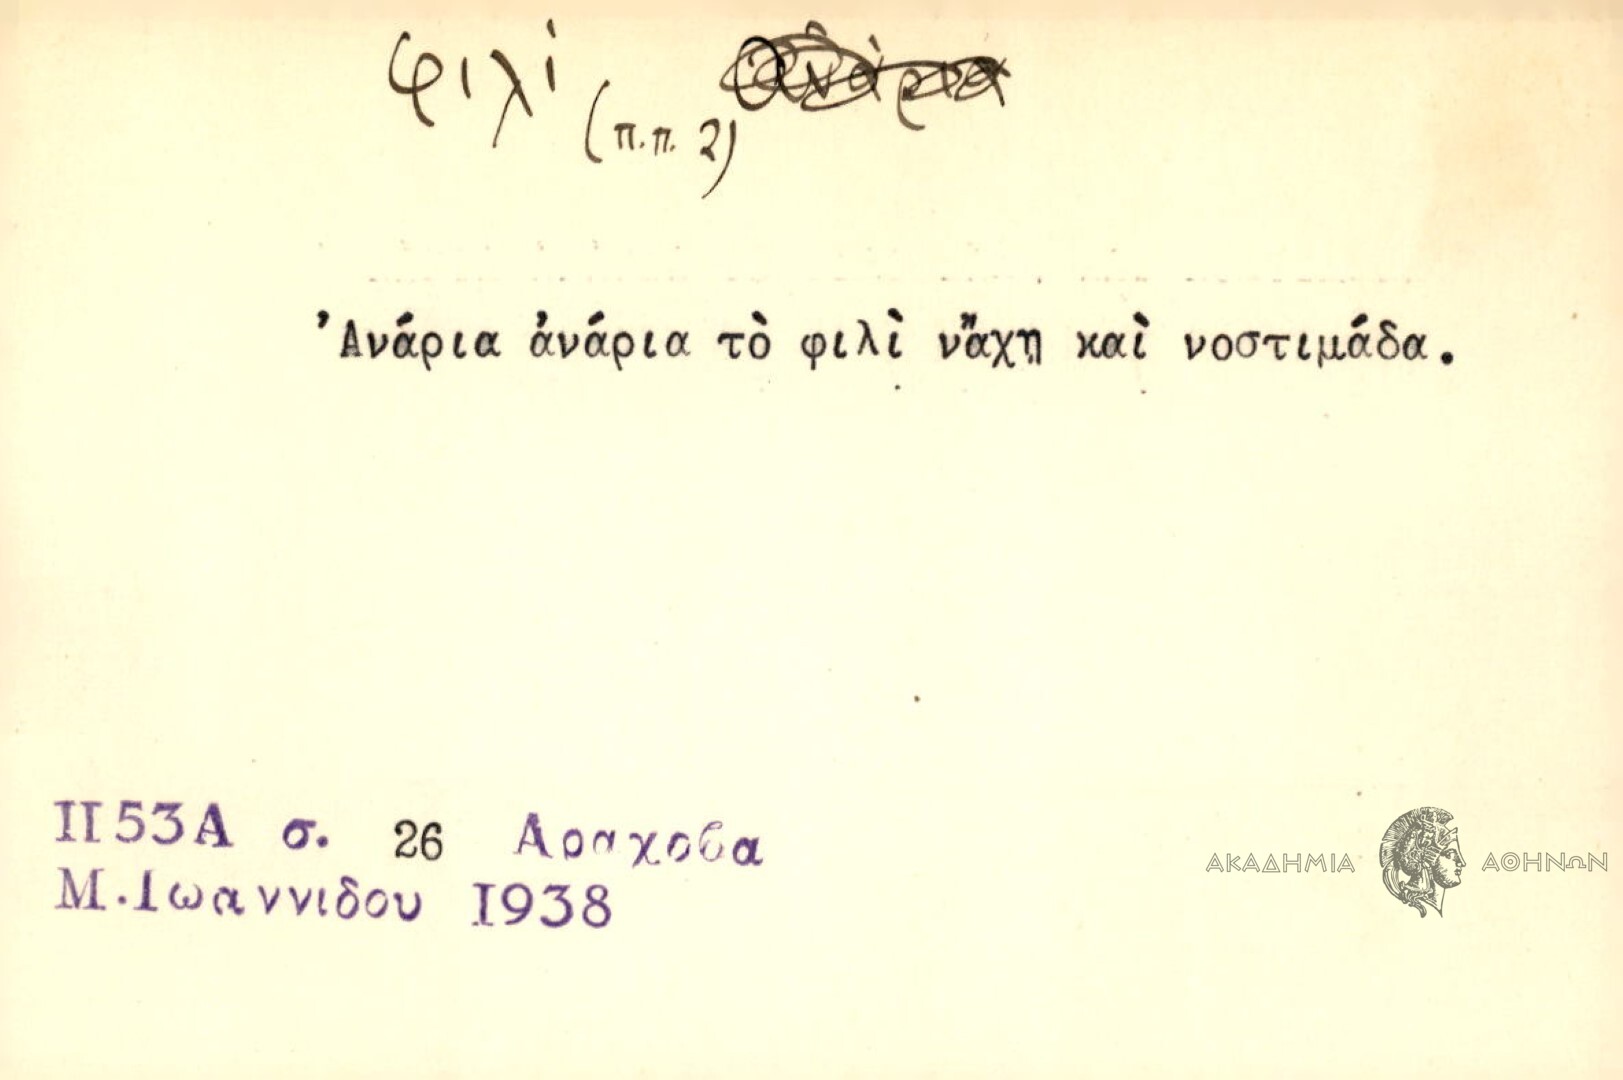 φιλὶ (π.π. 2) ἀνάρια
Ἀνάρια ἀνάρια τὸ φιλὶ νἄχῃ καὶ νοστιμάδα.
Π53Α σ. 26 Αραχοβα
Μ.Ιωαννιδου 1938
ΑΚΑΔΗΜΙΑ ΑΘΗΝΩΝ